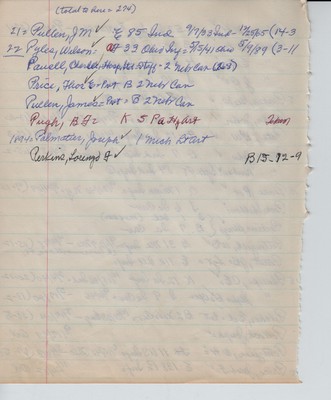 (total to here = 274)
21 = Pullen, J M ✓ E 85 Ind 9/7/33 Ind - (14-3
22 Pyles, Wilson: 33 Ohio Inf = Ohio 6/9/99 (3-11
Powell, Charles Hospital Stff - 2 Neb Cav
Price, Thos E = Pvt B 2 Neb Cav
Pullen, James = Pvt = B 2 Neb Cav
Pugh, B F = K 5 Pa Hy Art
1894: Palmatier, Joseph ✓ 1 Mich
Perkins, Lorenzo F ✓ B15-92-9